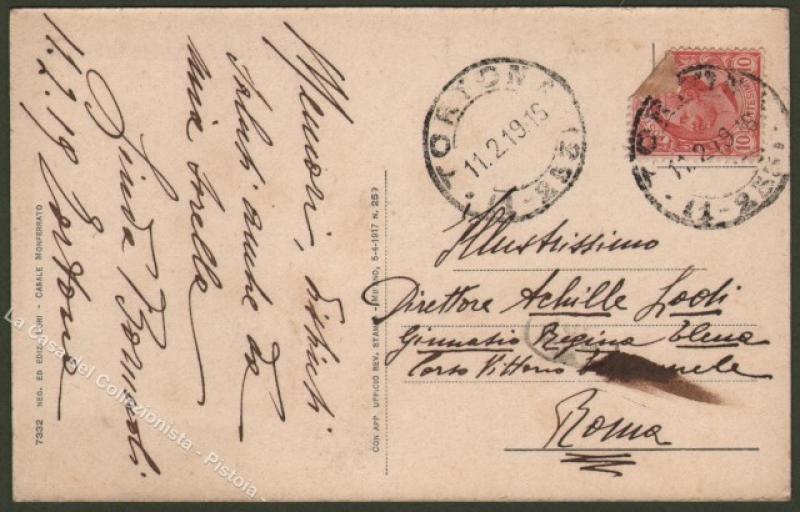 Memori, distinti
saluti anche da
mia sorella
Linda
11.2.19 Tortona
7332 NEG. ED EDIZ. - CASALE MONFERRATO
CON APP. UFFICIO REV. STAMPA - MILANO, 5-4-1917 N. 257
TORTONA
11.2.19.16
10
Illustrissimo
Direttore Achille Lodi
Ginnasio Regina Elena
Corso Vittorio
Roma
La Casa del Collezionista - Pistoia